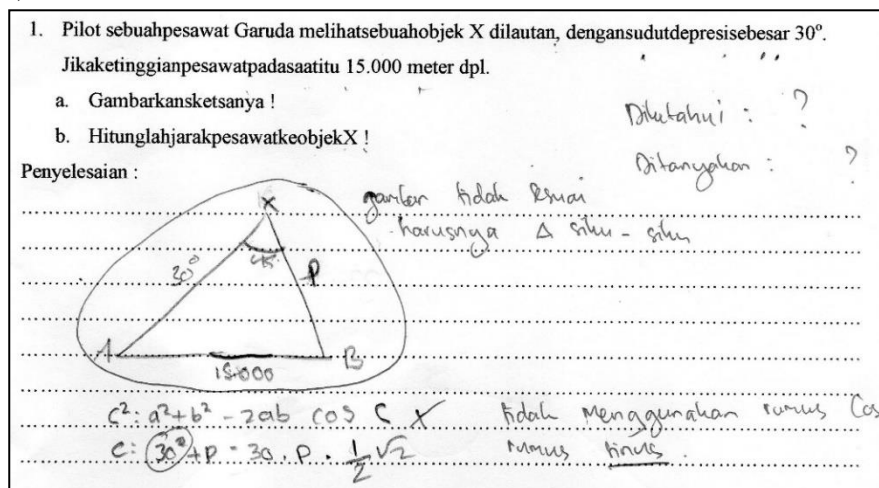 1. Pilot sebuahpesawat Garuda melihatsebuahobjek X dilautan, dengansudutdepresisebesar 30°.
Jikaketinggianpesawatpadasaatitu 15.000 meter dpl.
a. Gambarkansketsanya !
b. HitunglahjarakpesawatkeobjekX !
Diketahui : ?
Ditanyakan : ?
Penyelesaian :
gambar tidak sesuai
harusnya Δ siku - siku
X
30°
45°
P
A
B
15.000
c²: a² + b² - 2ab cos C X tidak menggunakan rumus Cos
c: 30² + P - 30 . P . 1/2 √2 rumus sinus